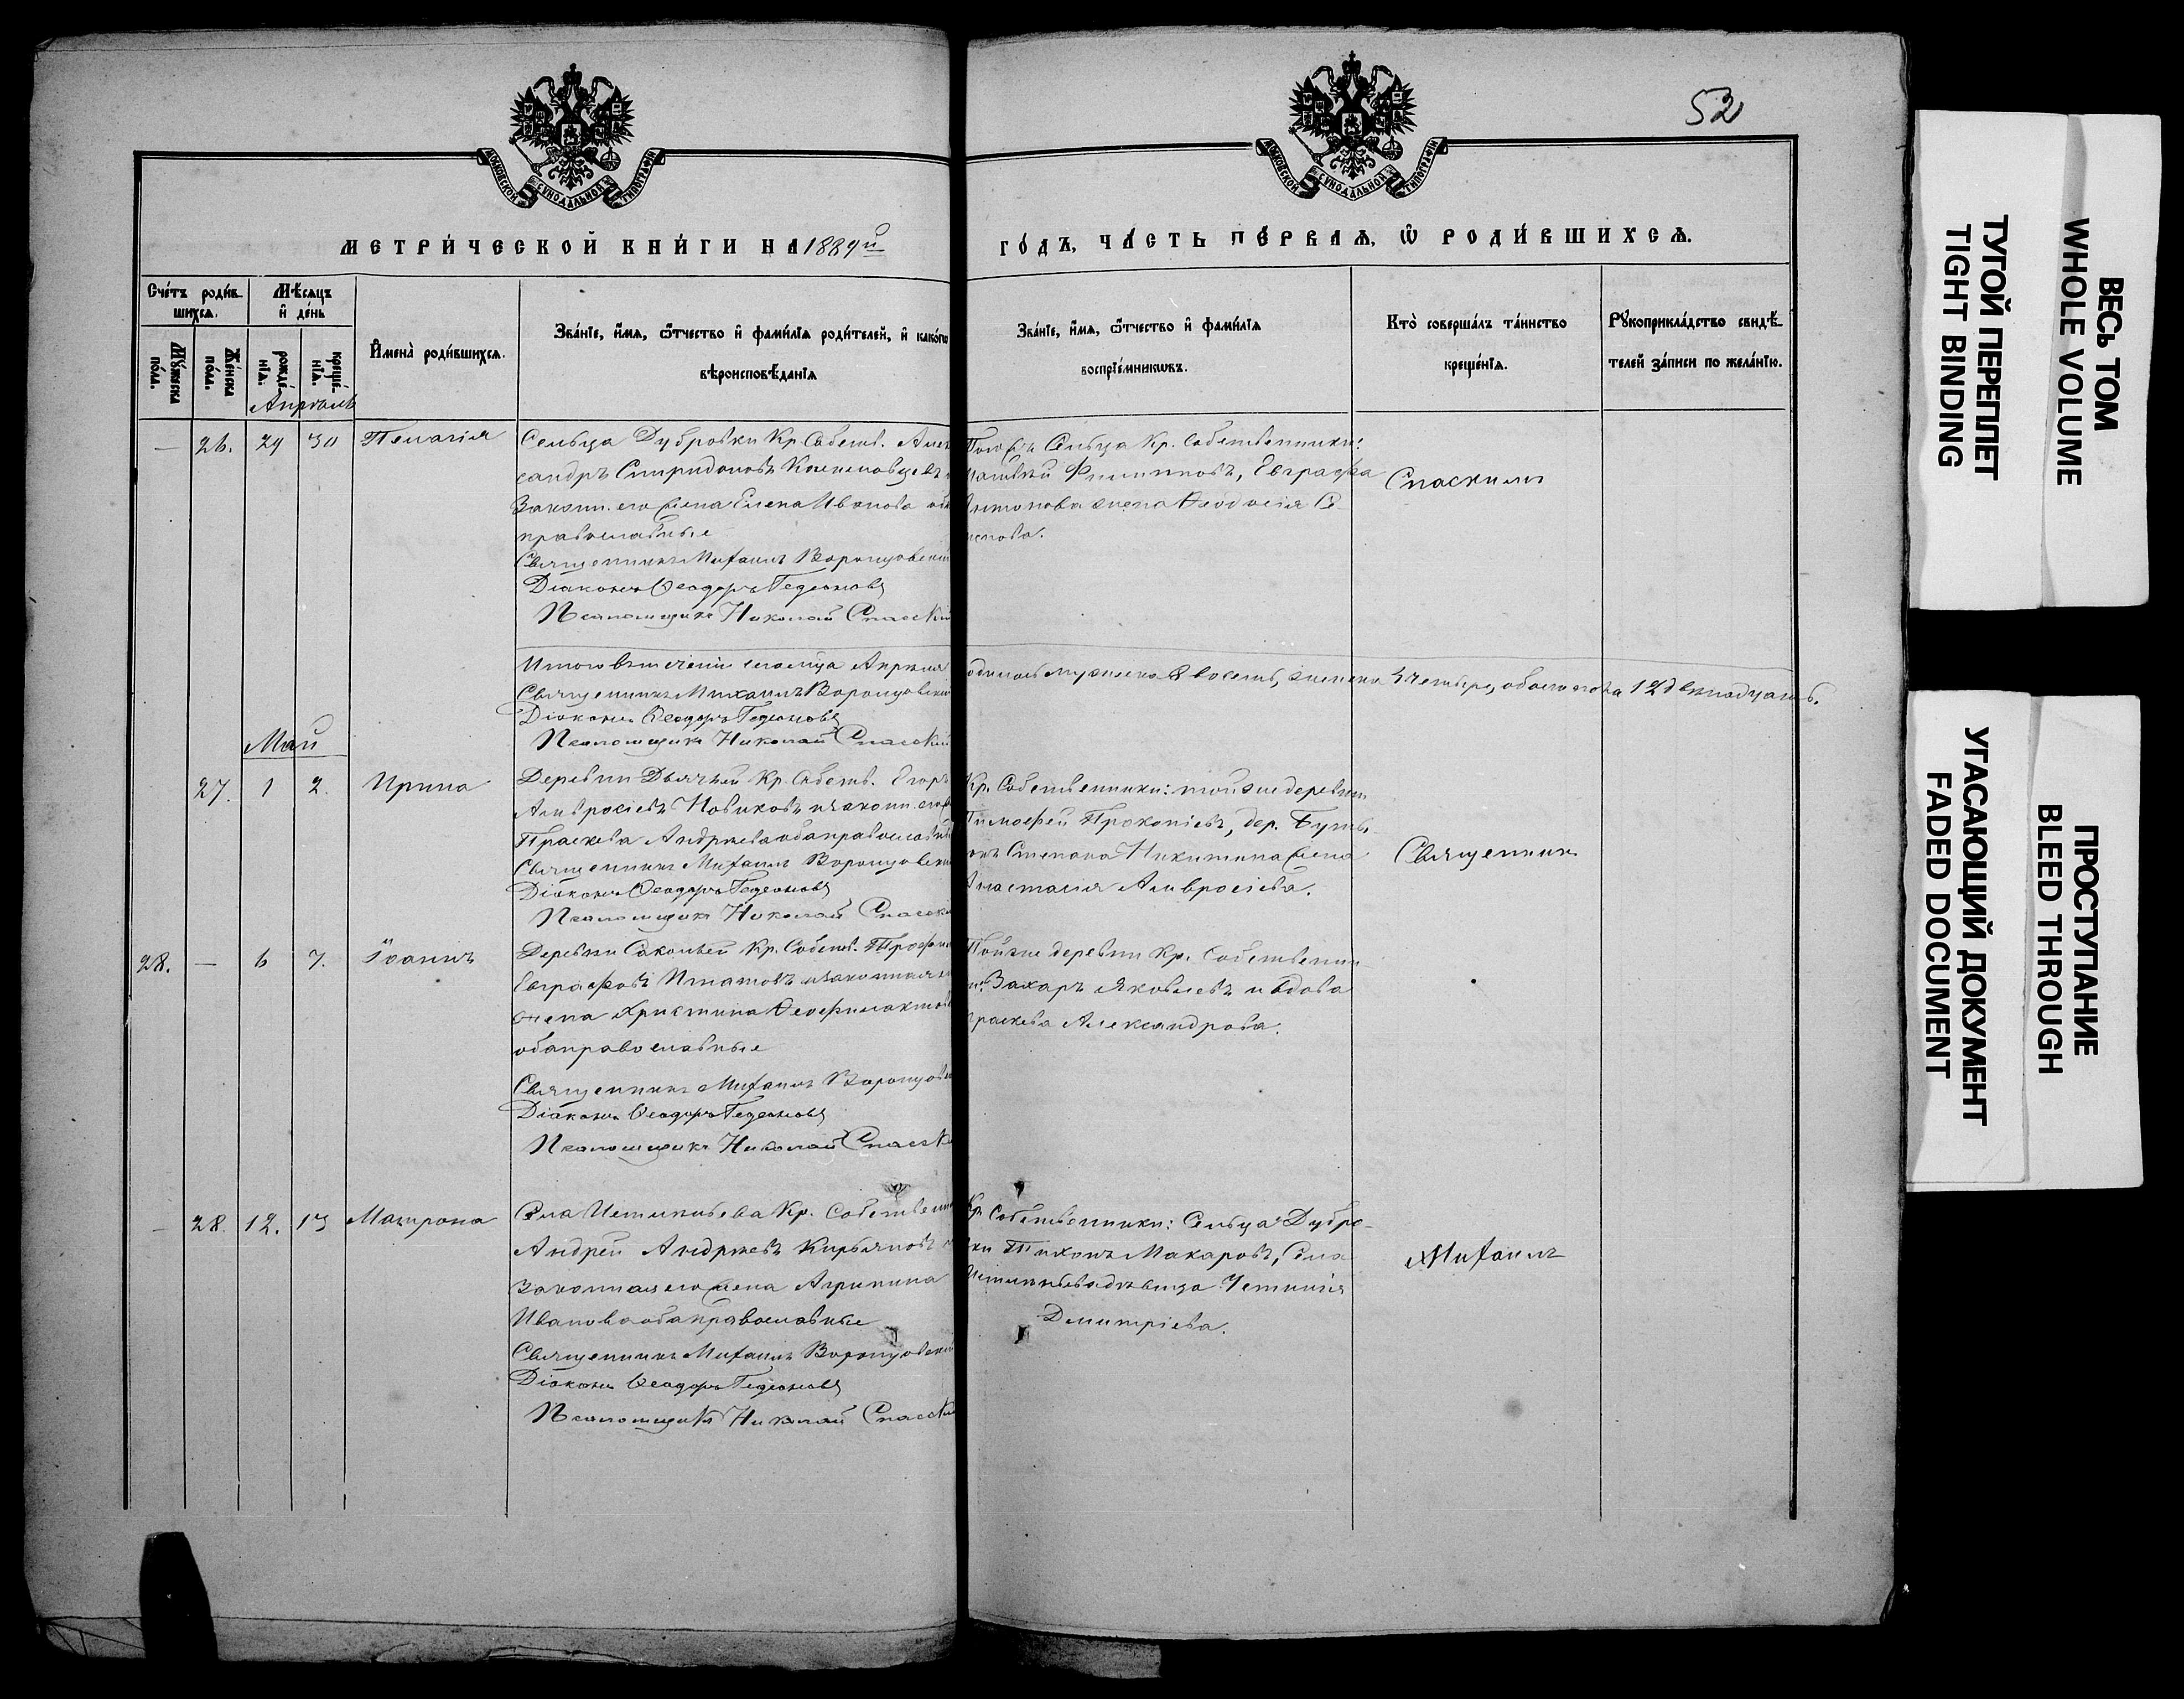 52
МОСКОВСКОЙ СѴНОДАЛЬНОЙ ТИПОГРАФІИ
МОСКОВСКОЙ СѴНОДАЛЬНОЙ ТИПОГРАФІИ
МЕТРИ́ЧЕСКОЙ КНИ́ГИ НА 1889й
ГО́ДЪ, ЧА́СТЬ ПЕ́РВАѦ, Ѡ РОДИ́ВШИХСѦ.
Сче́тъ роди́в-
шихсѧ.
Мѣ́сѧцъ
и҆ де́нь
Мꙋ́жеска
по́ла.
Же́нска
по́ла.
рожде́-
нїѧ.
креще́-
нїѧ.
И҆мена̀ роди́вшихсѧ.
Зва́нїе, и҆́мѧ, ѻ҆́тчество и҆ фамѝлїѧ роди́телей, и҆ како́гѡ
вѣроисповѣ́данїѧ
Зва́нїе, и҆́мѧ, ѻ҆́тчество и҆ фами́лїѧ
воспрїе́мникѡвъ.
Кто̀ соверша́лъ та́инство
креще́нїѧ.
Рꙋкоприкла́дство свидѣ́-
телей за́писи по жела́нїю.
Апрѣль
— 26. 29 30 Пелагія
Сельца Дубровки Кр. Собств. Алек
сандръ Спиридоновъ
Законн. его жена Елена Иванова оба
православные
Священникъ Михаилъ Воронцовскій
Діаконъ Ѳеодоръ Гедеоновъ
Псаломщикъ Николай Спасскій
Сельца Кр. Собственники:
Филипповъ, Евграфа
Антонова жена Ѳеодосія
Спаскимъ
Итого въ теченіи мѣсяца Апрѣля
родилось мужеска 8 восемь, женска 4 четыре, обоего пола 12 двенадцать.
Священникъ Михаилъ Воронцовскій
Діаконъ Ѳеодоръ Гедеоновъ
Псаломщикъ Николай Спасскій
Май
27. 1 2. Ирина
Деревни Кр. Собств. Егоръ
Амвросіевъ Новиковъ и законн. его
Праскева Андреева оба православные
Священникъ Михаилъ Воронцовскій
Діаконъ Ѳеодоръ Гедеоновъ
Псаломщикъ Николай Спасскій
Кр. Собственники: той же деревни
Тимофей Прокопіевъ, дер.
Степана Никитина жена
Анастасія Амвросіева.
Священник
28. — 6 7. Іоаннъ
Деревни Кр. Собств.
Евграфовъ Игнатовъ и законная его
жена Христина Ѳеофилактова
оба православные
Священникъ Михаилъ Воронцовскій
Діаконъ Ѳеодоръ Гедеоновъ
Псаломщикъ Николай Спасскій
Той же деревни Кр. Собственни
ки: Захаръ Яковлевъ и вдова
Праскева Александрова.
— 28. 12. 13 Макрона
Села Кр. Собственник
Андрей Андреевъ Кирьяновъ и
законная его жена Агрипина
Иванова оба православные
Священникъ Михаилъ Воронцовскій
Діаконъ Ѳеодоръ Гедеоновъ
Псаломщикъ Николай Спасскій
Кр. Собственники: Сельца Дубро-
вки Тихонъ Макаровъ, Села
девица
Димитріева.
Михаилъ
ВЕСЬ ТОМ
WHOLE VOLUME
ТУГОЙ ПЕРЕПЛЕТ
TIGHT BINDING
ПРОСТУПАНИЕ
BLEED THROUGH
УГАСАЮЩИЙ ДОКУМЕНТ
FADED DOCUMENT